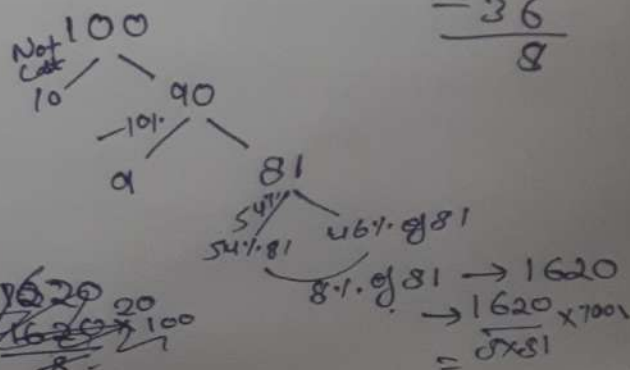 100
- 36
8
Not Cast
10
90
-10%
9
81
54%
54% 81
46% of 81
8% of 81 → 1620
→ 1620 × 100
8×81
=
1620
1620 20
100
8